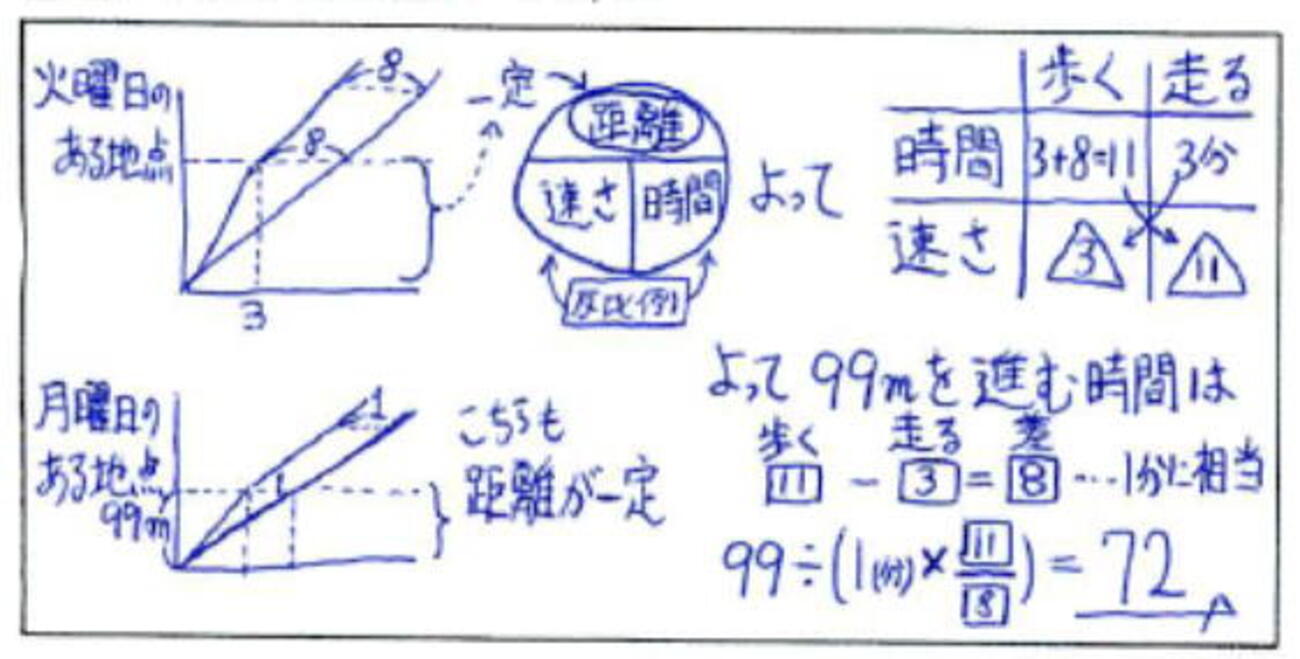 火曜日の
ある地点
8
8
3
一定
距離
速さ
時間
反比例
よって
歩く 走る
時間 3+8=11 3分
速さ 3 11
月曜日の
ある地点
99m
1
1
こちらも
距離が一定
よって 99mを進む時間は
歩く 走る 差
11 − 3 = 8 …1分に相当
99÷(1(分)×11/8)=72